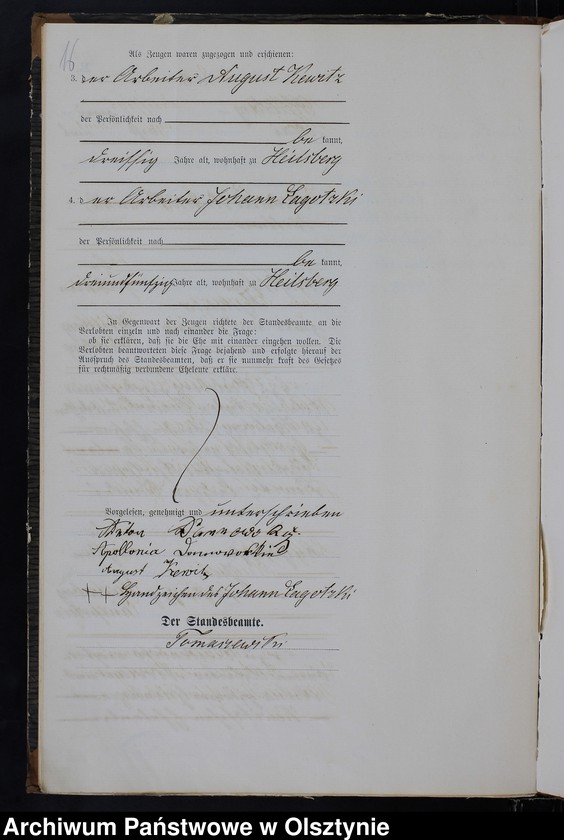 16
Als Zeugen waren zugezogen und erschienen:
3. der Arbeiter August Kewitz
der Persönlichkeit nach
be kannt,
dreissig Jahre alt, wohnhaft zu Heilsberg
4. der Arbeiter Johann Lagotzki
der Persönlichkeit nach
be kannt,
dreiundfünfzig Jahre alt, wohnhaft zu Heilsberg
In Gegenwart der Zeugen richtete der Standesbeamte an die
Verlobten einzeln und nach einander die Frage:
ob sie erklären, daß sie die Ehe mit einander eingehen wollen. Die
Verlobten beantworteten diese Frage bejahend und erfolgte hierauf der
Ausspruch des Standesbeamten, daß er sie nunmehr kraft des Gesetzes
für rechtmäßig verbundene Eheleute erkläre.
Vorgelesen, genehmigt und unterschrieben
Anton
Apollonia
August Kewitz
+++ Handzeichen des Johann Lagotzki
Der Standesbeamte.
Tomaszewski
Archiwum Państwowe w Olsztynie